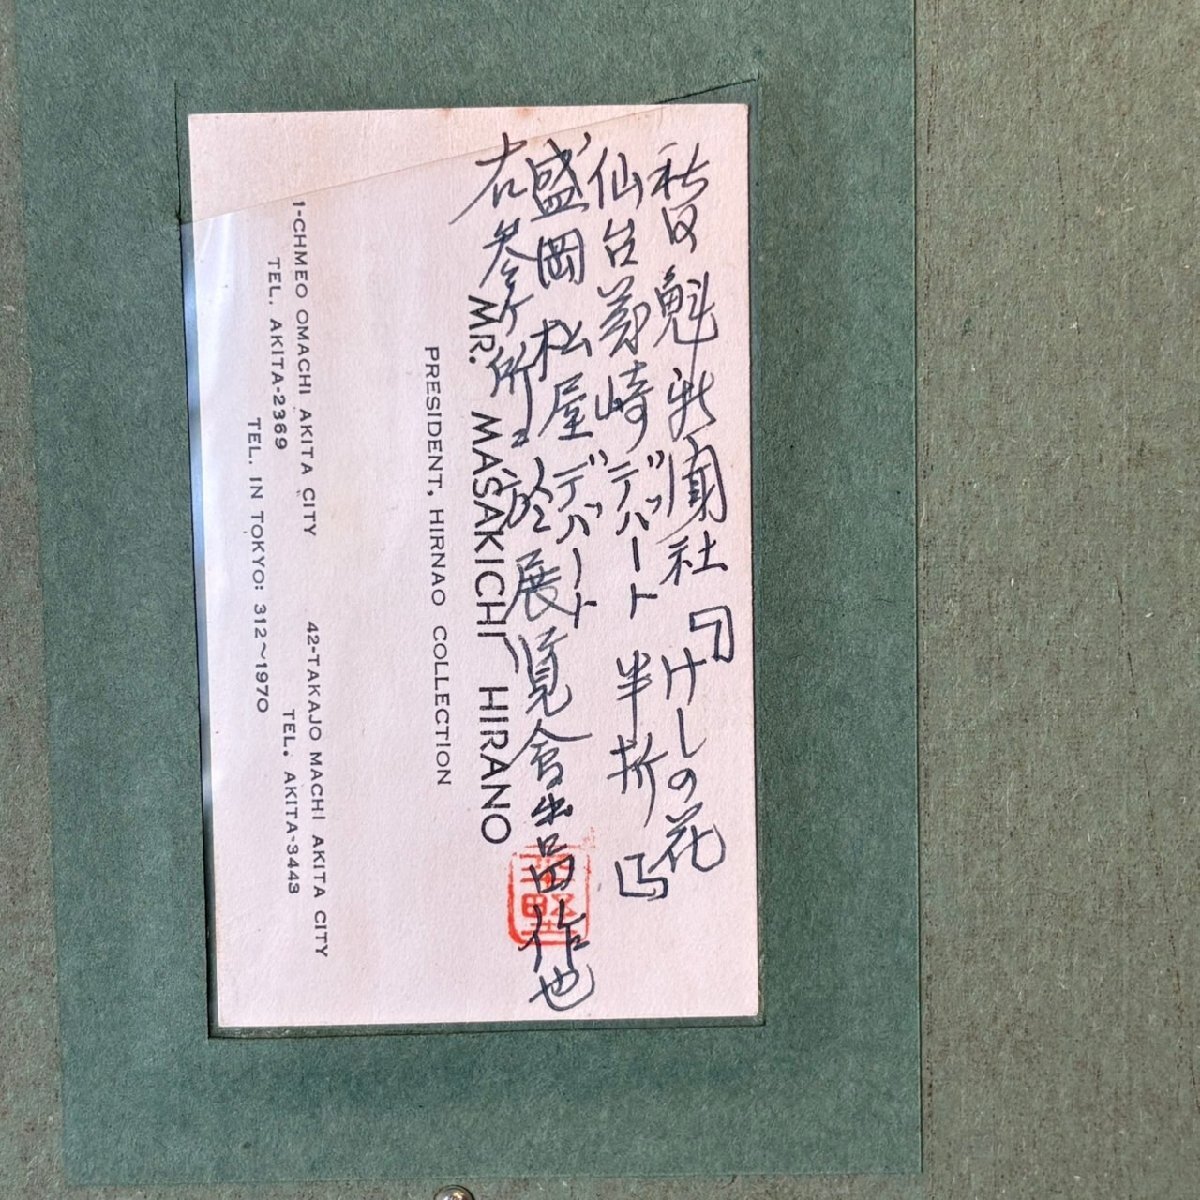 秋田魁新聞社『けしの花
仙台藤崎デパート 半折』
盛岡松屋デパート
右参ケ所ニ於展覧会出品作也
MR. MASAKICHI HIRANO
PRESIDENT. HIRNAO COLLECTION
1-CHMEO OMACHI AKITA CITY
TEL. AKITA-2369
42-TAKAJO MACHI AKITA CITY
TEL. AKITA-3443
TEL. IN TOKYO: 312~1970